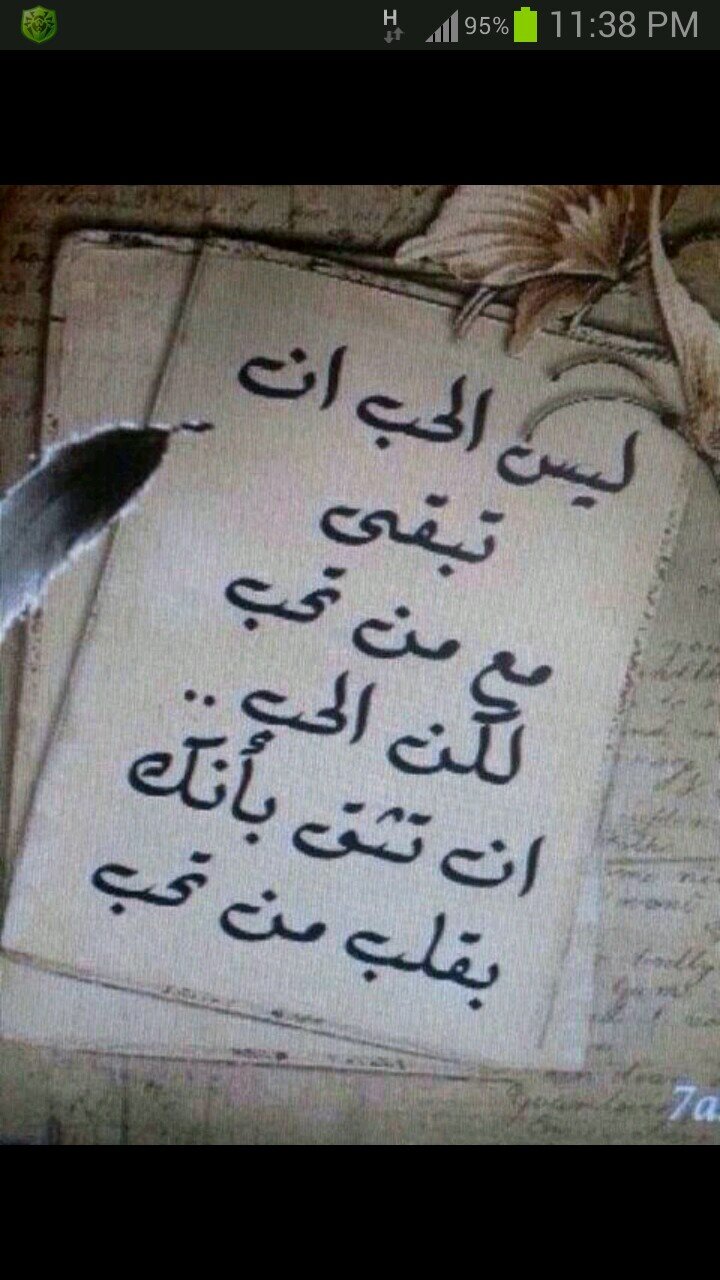 H 95% 11:38 PM
ليس الحب ان
تبقى
مع من تحب
لكن الحب ..
ان تثق بأنك
بقلب من تحب
7a